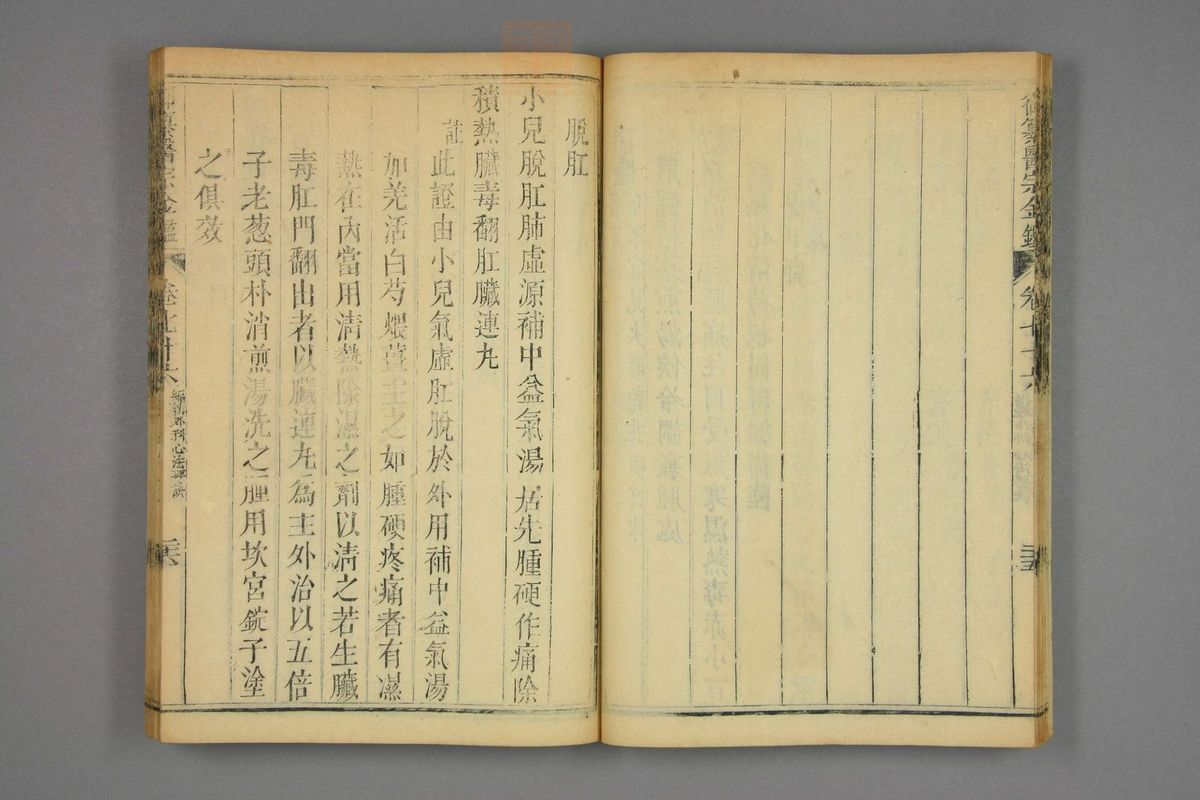 御纂醫宗金鑑
卷七十六
三十五
脫肛
小兒脫肛肺虛源補中益氣湯居先腫硬作痛除
積熱臟毒翻肛臟連丸
註此證由小兒氣虛肛脫於外用補中益氣湯
加羌活白芍煨薑主之如腫硬疼痛者有濕
熱在內當用清熱除濕之劑以清之若生臟
毒肛門翻出者以臟連丸為主外治以五倍
子老葱頭朴消煎湯洗之腫用坎宮錠子塗
之俱效
御纂醫宗金鑑
卷七十六
編輯外科心法要訣
三十六